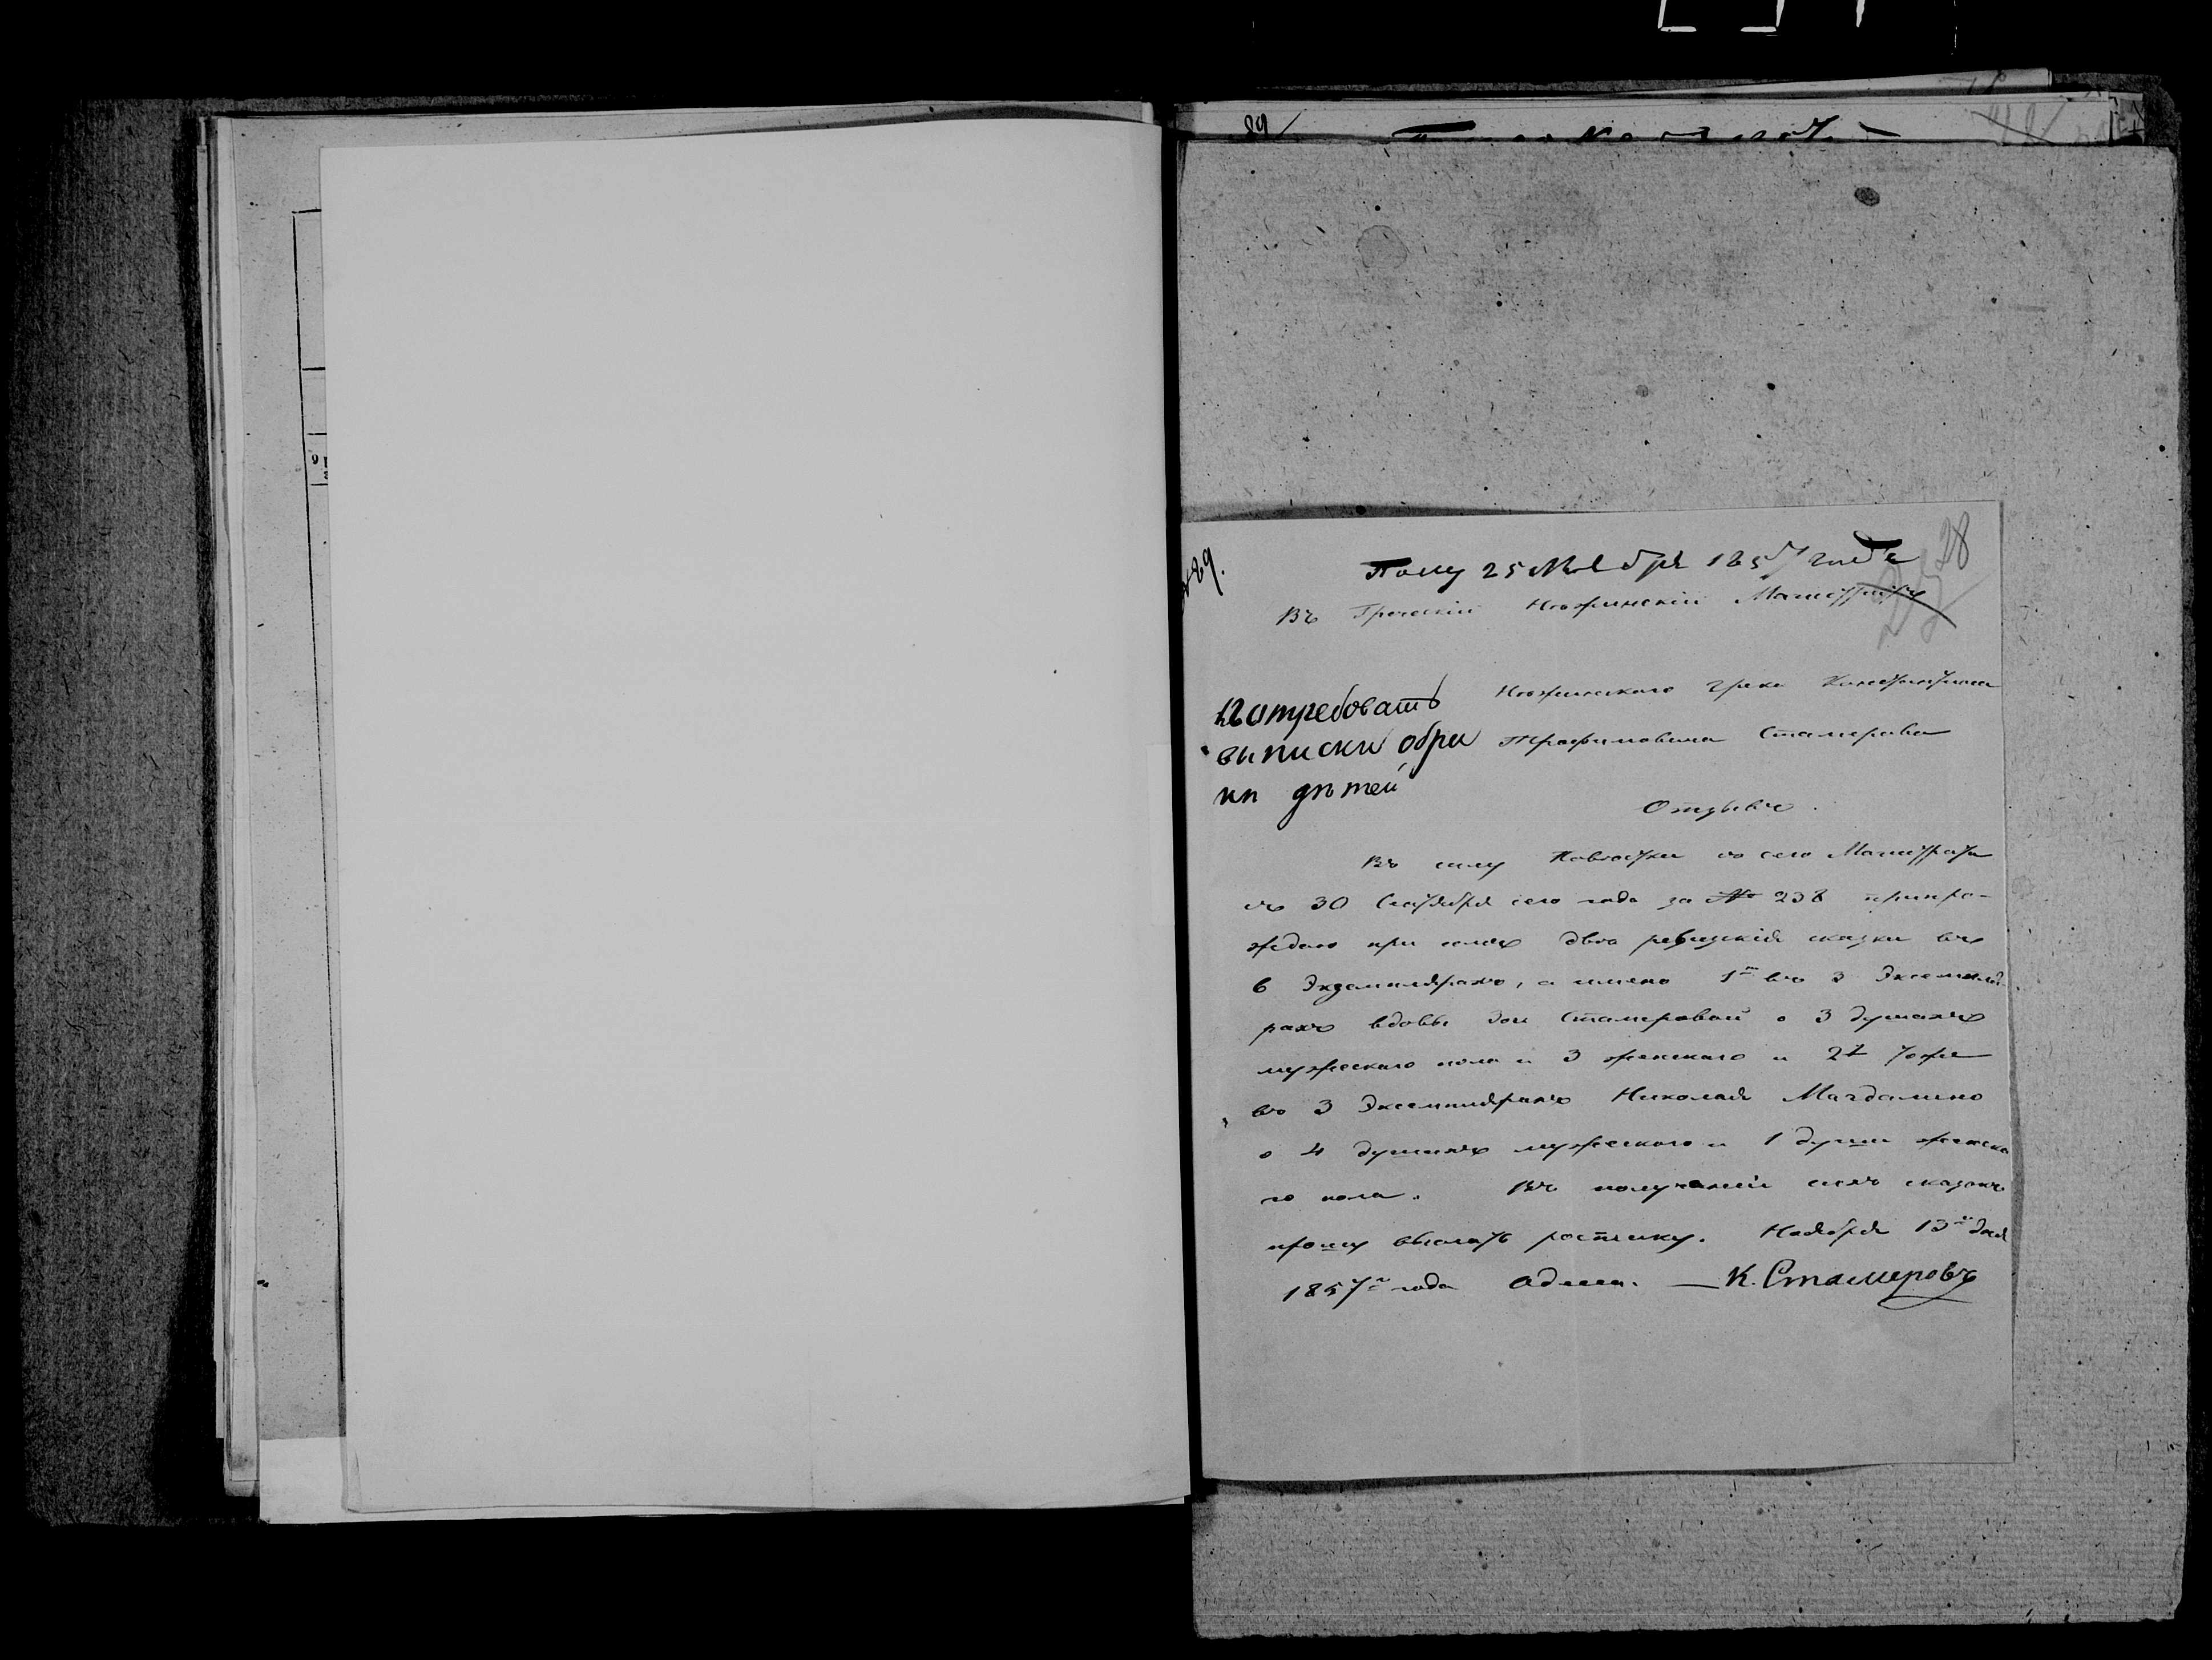 89
№ 89.
28
Полу 25 Ноября 1857 года
Въ Греческій Нѣжинскій Магистратъ
Нѣжинскаго грека Константина
Трофимовича Стамерова
Потребовать
выписки обри
ни дѣтей
Отзывъ.
Въ силу Повѣстки съ сего Магистрата
отъ 30 Октября сего года за № 238 препро-
ждаю при семъ двѣ ревизскія сказки въ
6 Экземплярахъ, а имено 1ю въ 3 Экземпля-
рахъ вдовы Зои Стамеровой о 3 душахъ
мужескаго пола и 3 женскаго и 2ю тоже
въ 3 Экземплярахъ Николая Магдалино
о 4 душахъ мужескаго и 1 души женска
го пола. Въ получаніи сихъ сказокъ
прошу выслать росписку. Ноября 13го дня
1857го года Одесса. — К. Стамеровъ